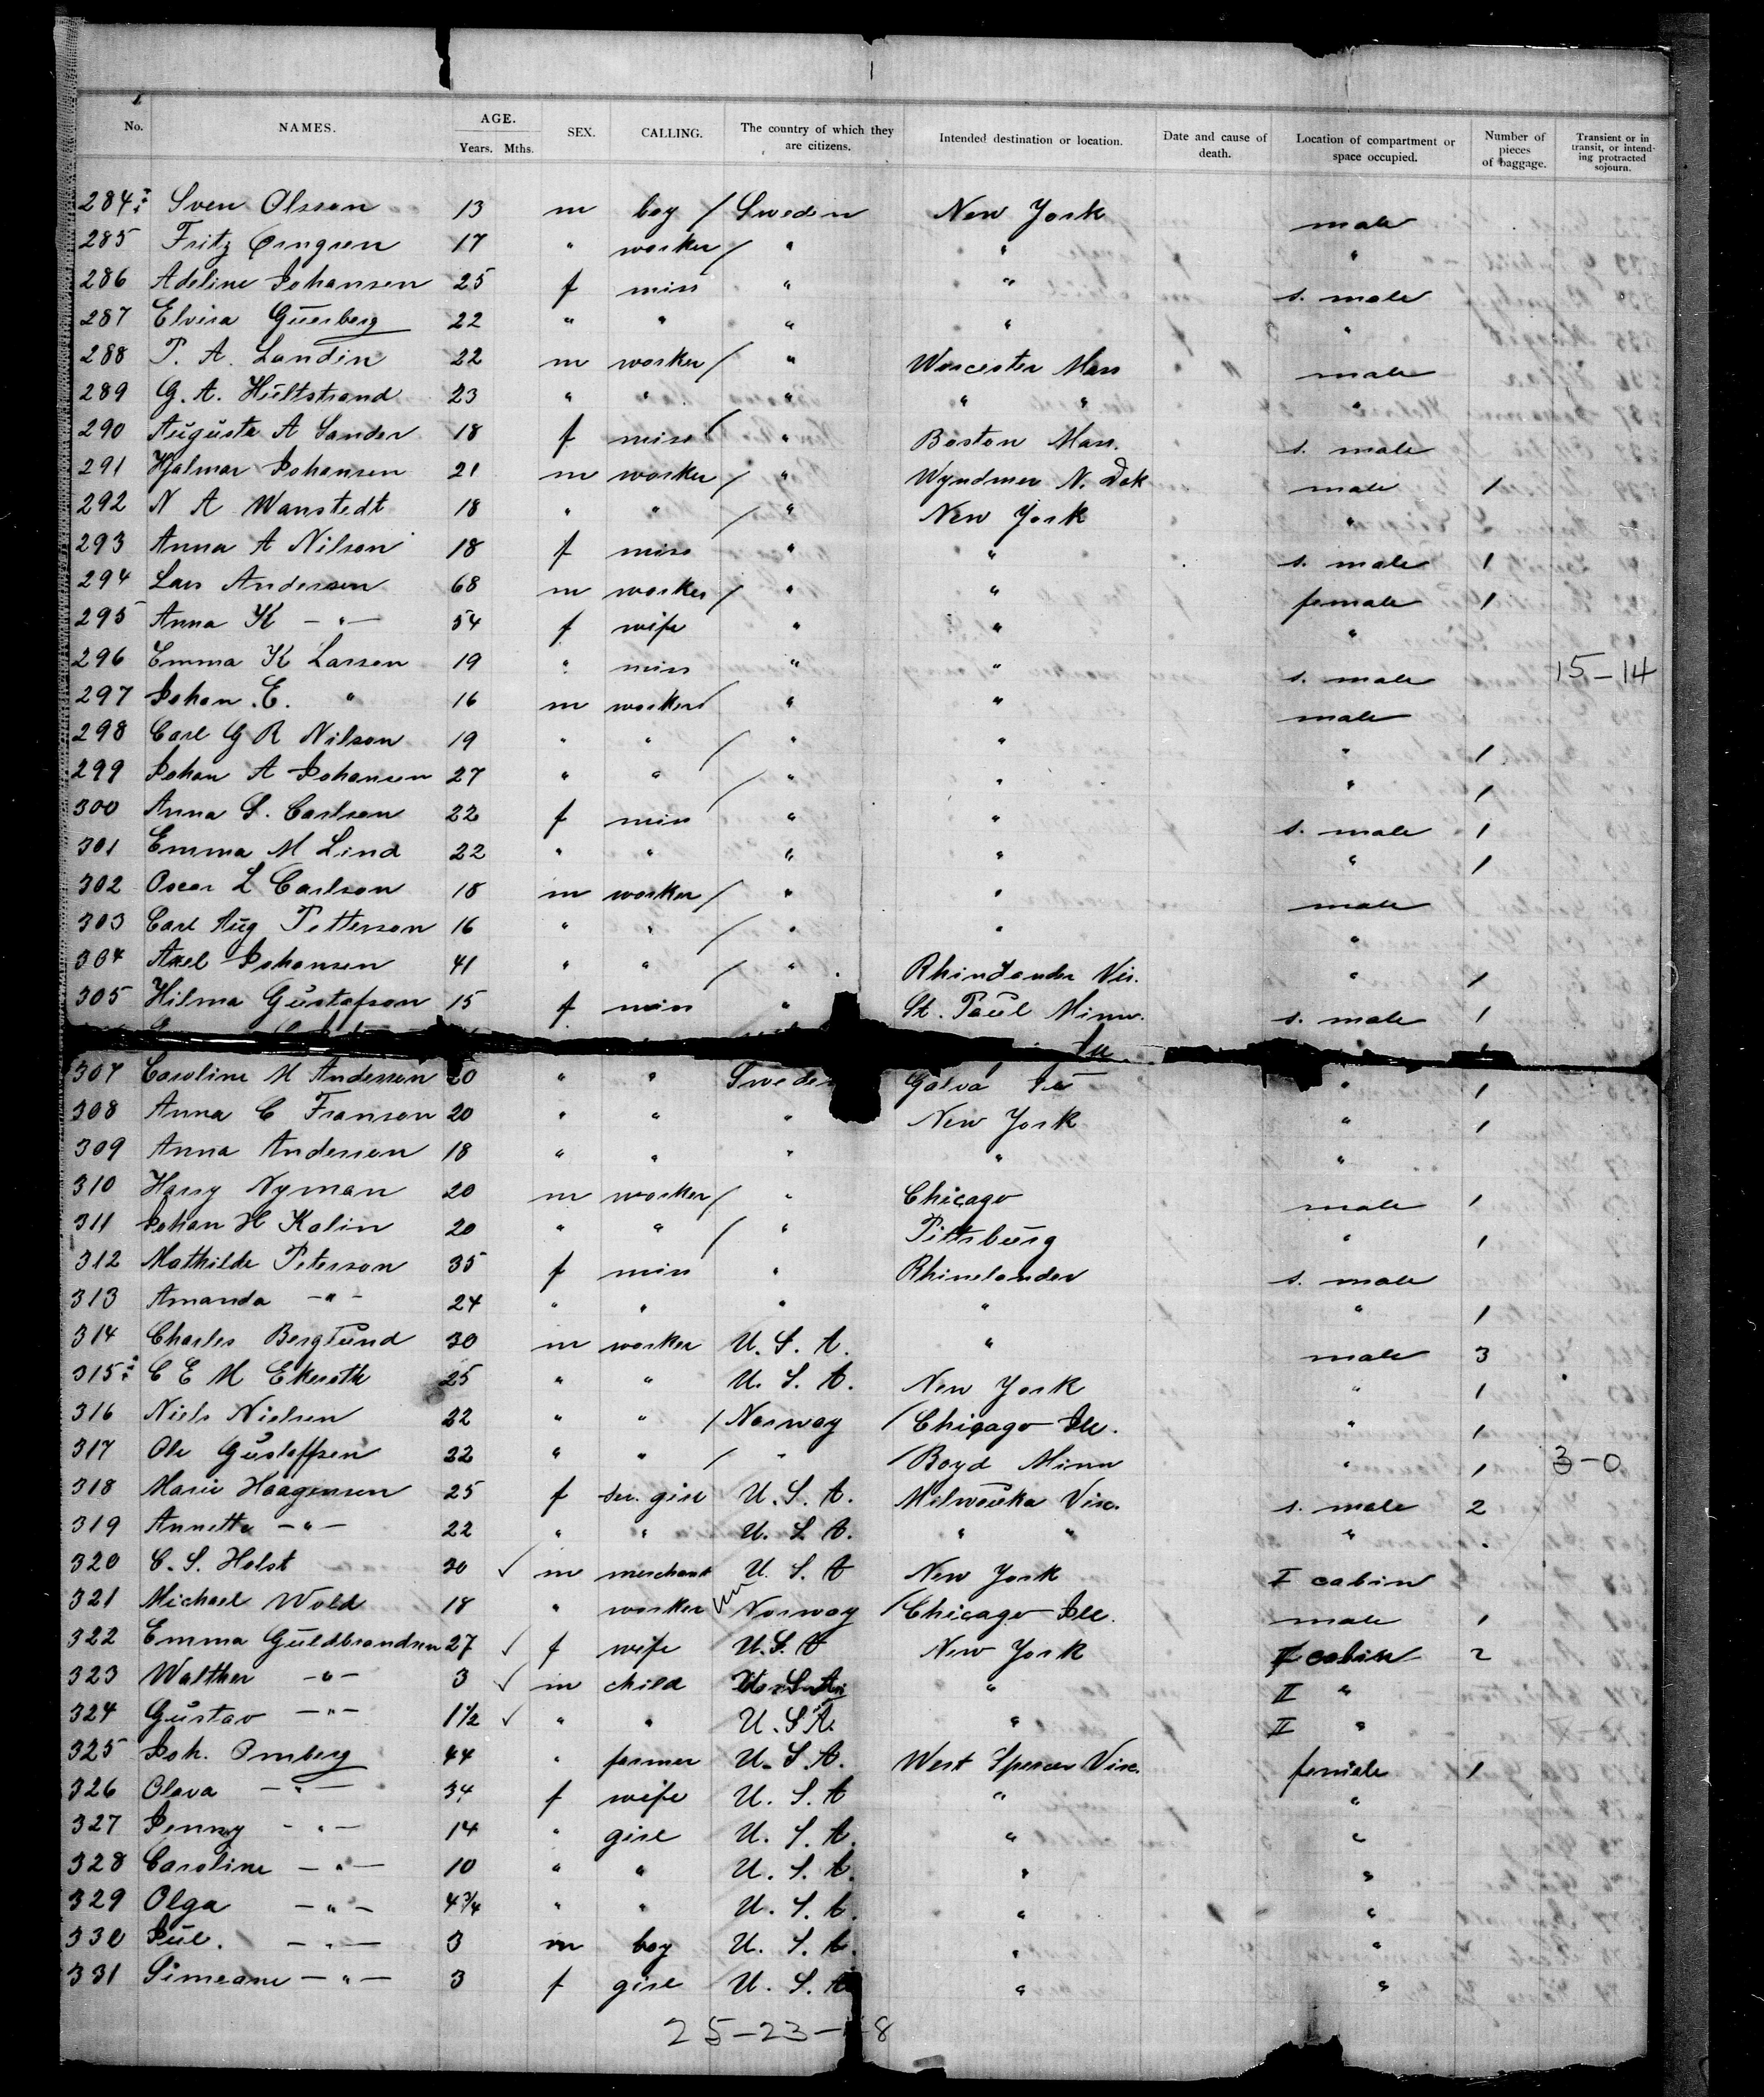 No. NAMES. AGE. Years. Mths. SEX. CALLING. The country of which they are citizens. Intended destination or location. Date and cause of death. Location of compartment or space occupied. Number of pieces of baggage. Transient or in transit, or intending protracted sojourn.
284 Sven Olsson 13 m boy / Sweden New York male
285 Fritz Örngren 17 " worker / " " "
286 Adeline Johansen 25 f miss " " s. male
287 Elvira 22 " " " " "
288 P. A. Landin 22 m worker / " Worcester Mass male
289 G. A. Hultstrand 23 " " " " " "
290 Augusta A Sander 18 f miss / " Boston Mass. s. male
291 Hjalmar Johansen 21 m worker / " Wyndmer N. Dak male 1
292 N A Wanstedt 18 " " / " New York "
293 Anna A Nilson 18 f miss " " s. male 1
294 Lars Andersen 68 m worker / " " female 1
295 Anna K — " — 54 f wife " " "
296 Emma K Larsen 19 " miss " " s. male 15-14
297 Johan E. " 16 m worker / " " male
298 Carl G R Nilson 19 " " / " " " 1
299 Johan A Johansen 27 " " / " " " 1
300 Anna S. Carlson 22 f miss " " s. male 1
301 Emma M Lind 22 " " " " " 1
302 Oscar L Carlson 18 m worker / " " male
303 Carl Aug Petterson 16 " " / " " "
304 Axel Johansen 41 " " / " Rhinlander Vis. " 1
305 Hilma Gustafson 15 f miss " St. Paul Minn. s. male 1
307 Caroline M Anderson 20 " " Sweden Galva Ill " 1
308 Anna C Franson 20 " " " New York " 1
309 Anna Anderson 18 " " " " "
310 Harry Nyman 20 m worker / " Chicago male 1
311 Johan H Kalin 20 " " / " Pittsburg " 1
312 Mathilde Peterson 35 f miss " Rhinelander s. male
313 Amanda — " — 24 " " " " " 1
314 Charles Berglund 30 m worker U. S. A. " male 3
315 C E M Ekeroth 25 " " U. S. A. New York " 1
316 Niels Nielsen 22 " " / Norway / Chicago Ill. " 1
317 Ole Gustoffsen 22 " " / " / Boyd Minn " 1 3-0
318 Marie Haagensen 25 f ser. girl U. S. A. Milwauka Visc. s. male 2
319 Annette — " — 22 " " U. S. A. " " "
320 C. S. Holst 30 ✓ m merchant U. S. A New York I cabin
321 Michael Wold 18 " worker Norway / Chicago Ill. male 1
322 Emma Guldbrandsen 27 ✓ f wife U. S. A New York II cabin 2
323 Walther — " — 3 ✓ m child U. S. A. " II "
324 Gustav — " — 1½ ✓ " " U. S. A. " II "
325 Joh. Omberg 44 " farmer U. S. A. West Visc. female 1
326 Olava — " — 34 f wife U. S. A " "
327 Jenny — " — 14 " girl U. S. A. " "
328 Caroline — " — 10 " " U. S. A. " "
329 Olga — " — 4¾ " " U. S. A. " "
330 Jul. — " — 3 m boy U. S. A. " "
331 Simeane — " — 3 f girl U. S. A " "
25-23-